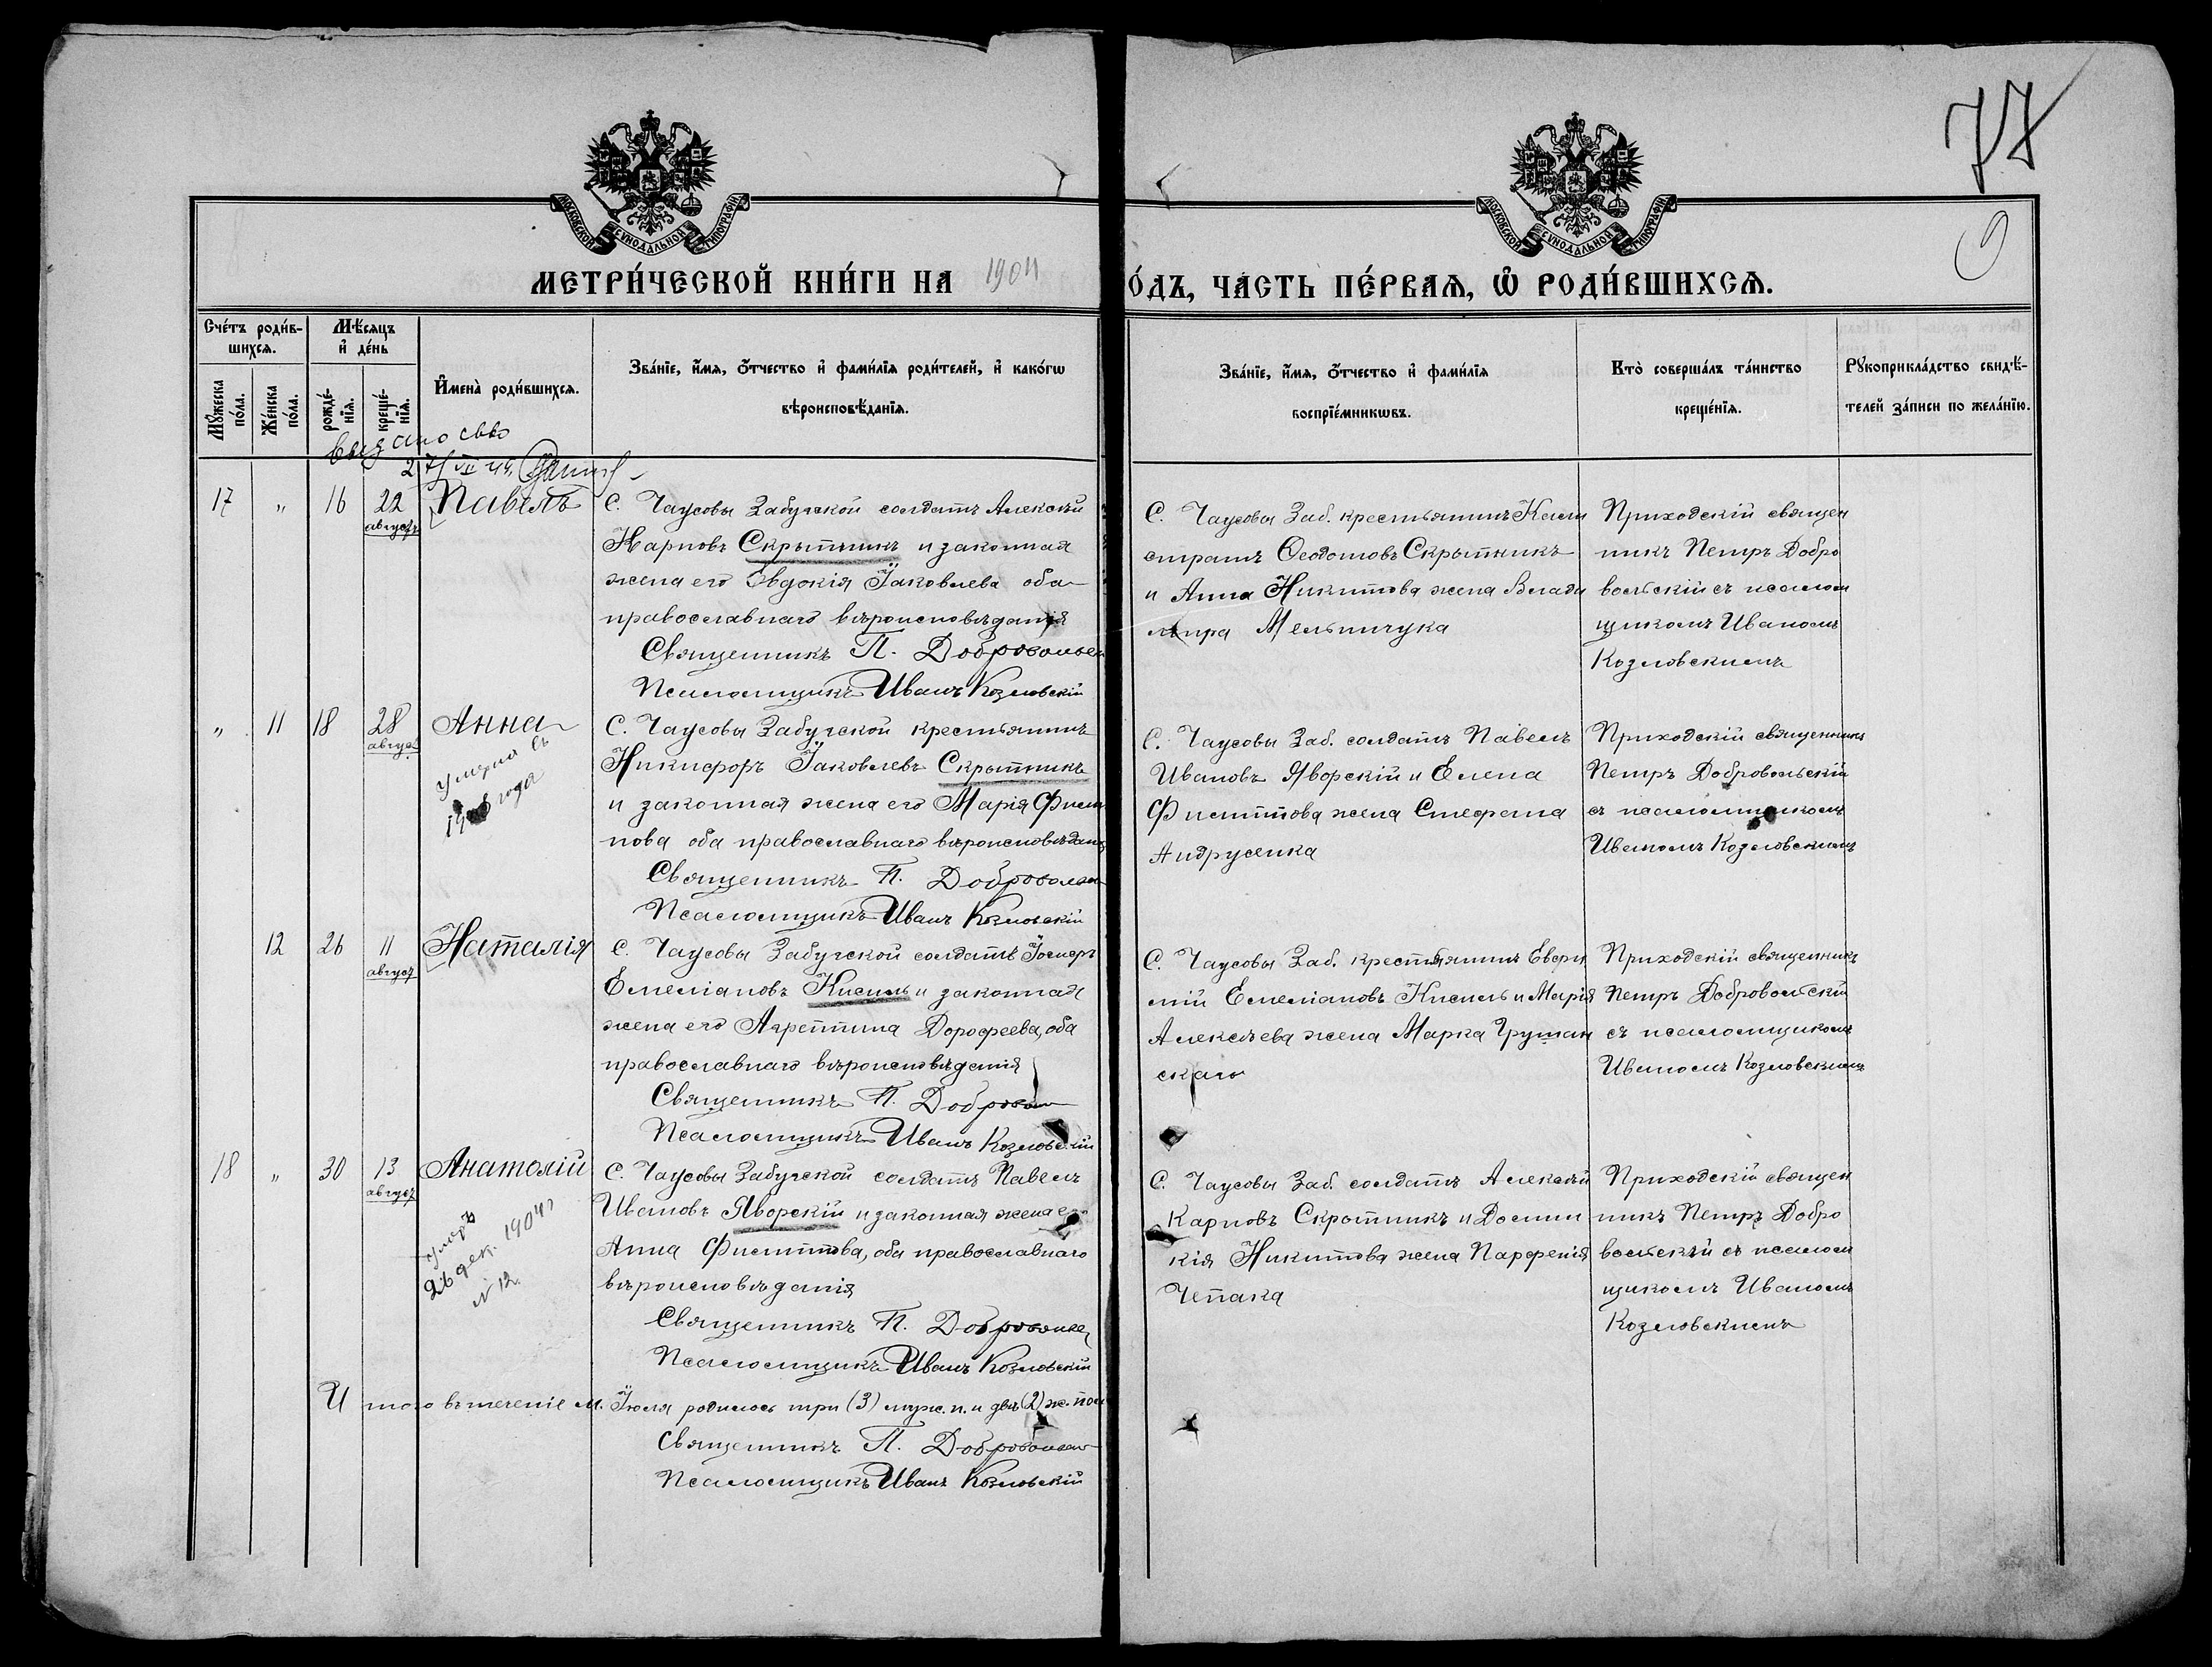 77
МОСКОВСКОЙ СѴНОДАЛЬНОЙ ТИПОГРАФІИ
МОСКОВСКОЙ СѴНОДАЛЬНОЙ ТИПОГРАФІИ
МЕТРИ́ЧЕСКОЙ КНИ́ГИ НА 1904
О́ДЪ, ЧА́СТЬ ПЕ́РВАѦ, Ѽ РОДИ́ВШИХСѦ.
Сче́тъ роди́в-
шихсѧ.
Мѣ́сѧцъ
и҆ де́нь
Мꙋ́жеска
по́ла.
Же́нска
по́ла.
рожде́-
нїѧ.
креще́-
нїѧ.
И҆мена̀ роди́вшихсѧ.
Зва́нїе, и҆́мѧ, о҆́тчество и҆ фами́лїѧ роди́телей, и҆ како́гѡ
вѣроисповѣ́данїѧ.
Зва́нїе, и҆́мѧ, о҆́тчество и҆ фами́лїѧ
воспрїе́мникѡвъ.
Кто̀ соверша́лъ та́инство
креще́нїѧ.
Рꙋкоприкла́дство свидѣ́-
телей за́писи по жела́нїю.
Выдано свво
17 " 16 22 августъ Павелъ
С. Чаусовы Забугской солдатъ Алексѣй
Карповъ Скрыпникъ и законная
жена его Евдокія Іаковлева оба
православнаго вѣроисповѣданія
Священникъ П. Добровольск
Псаломщикъ Иванъ Козловскій
С. Чаусовы Заб. крестьянинъ Кали
стратъ Ѳеодотовъ Скрыпникъ
и Анна Никитова жена Влади
мира Мельничука
Приходскій священ
никъ Петръ Добро
вольскій съ псалом
щикомъ Иваномъ
Козловскимъ
" 11 18 28 август Анна
умерла въ
года
С. Чаусовы Забугской крестьянинъ
Никифоръ Іаковлевъ Скрыпникъ
и законная жена его Марія Филип
пова оба православнаго вѣроисповѣдан
Священникъ П. Добровольск
Псаломщикъ Иванъ Козловскій
С. Чаусовы Заб. солдатъ Павелъ
Ивановъ Яворскій и Елена
Филиппова жена Стефана
Андрусенка
Приходскій священникъ
Петръ Добровольскій
съ псаломщикомъ
Иваномъ Козловскимъ
12 26 11 август Наталія
С. Чаусовы Забугской солдатъ Іосифъ
Емеліановъ Кисиль и законная
жена его Агреппина Дорофеева, оба
православнаго вѣроисповѣданія
Священникъ П. Добровол
Псаломщикъ Иванъ Козловскій
С. Чаусовы Заб. крестьянинъ Евфи
мій Емеліановъ Кисиль и Марія
Алексѣева жена Марка Грушан
скаго
Приходскій священникъ
Петръ Добровольскій
съ псаломщикомъ
Иваномъ Козловскимъ
18 " 30 13 август Анатолій
умеръ
26 дек. 1904 г
№ 12.
С. Чаусовы Забугской солдатъ Павелъ
Ивановъ Яворскій и законная жена его
Анна Филиппова, оба православнаго
вѣроисповѣданія
Священникъ П. Добровольск
Псаломщикъ Иванъ Козловскій
С. Чаусовы Заб. солдатъ Алексѣй
Карповъ Скрыпникъ и Домни
кія Никитова жена Парфенія
Чепака
Приходскій священ
никъ Петръ Добро
вольскій съ псалом
щикомъ Иваномъ
Козловскимъ
Итого въ теченіе м. Іюля родилось три (3) муж. п. и двѣ (2) ж. пол
Священникъ П. Добровольск
Псаломщикъ Иванъ Козловскій